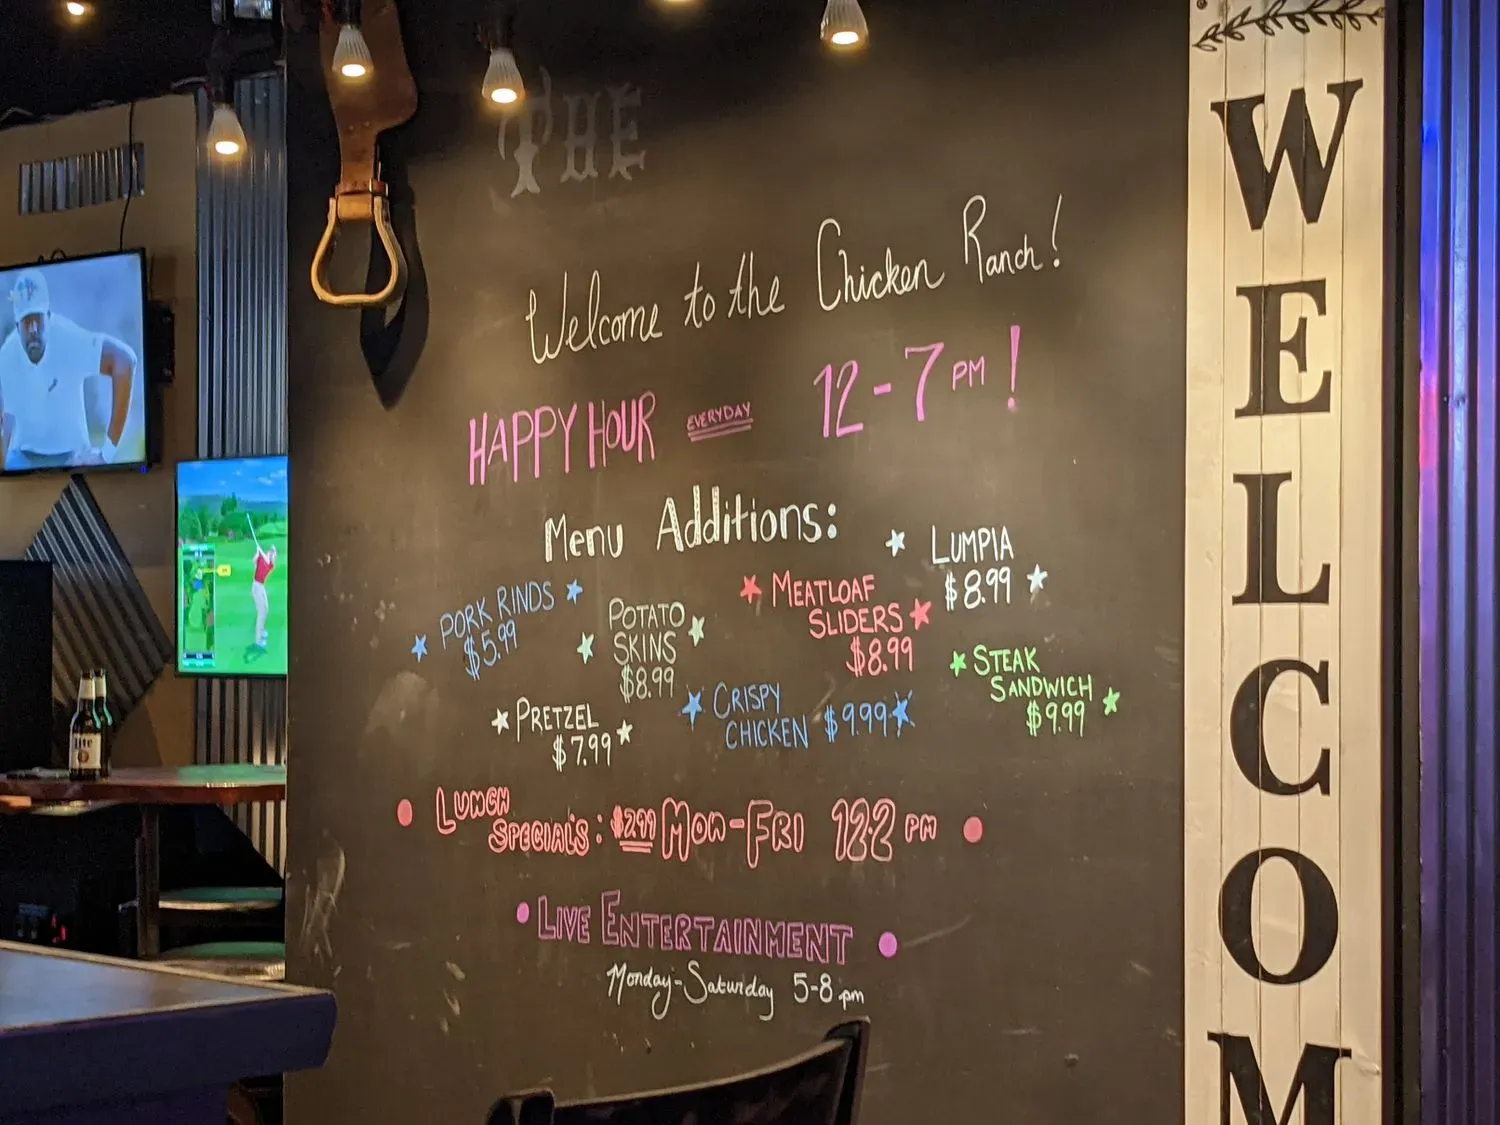 THE
Welcome to the Chicken Ranch!
HAPPY HOUR EVERYDAY 12-7 PM!
Menu Additions:
LUMPIA
$8.99
PORK RINDS
$5.99
POTATO
SKINS
$8.99
MEATLOAF
SLIDERS
$8.99
STEAK
SANDWICH
$9.99
PRETZEL
$7.99
CRISPY
CHICKEN $9.99
LUNCH
SPECIALS: $2.99 MON-FRI 12-2 PM
LIVE ENTERTAINMENT
Monday-Saturday 5-8 pm
WELCOM
lite